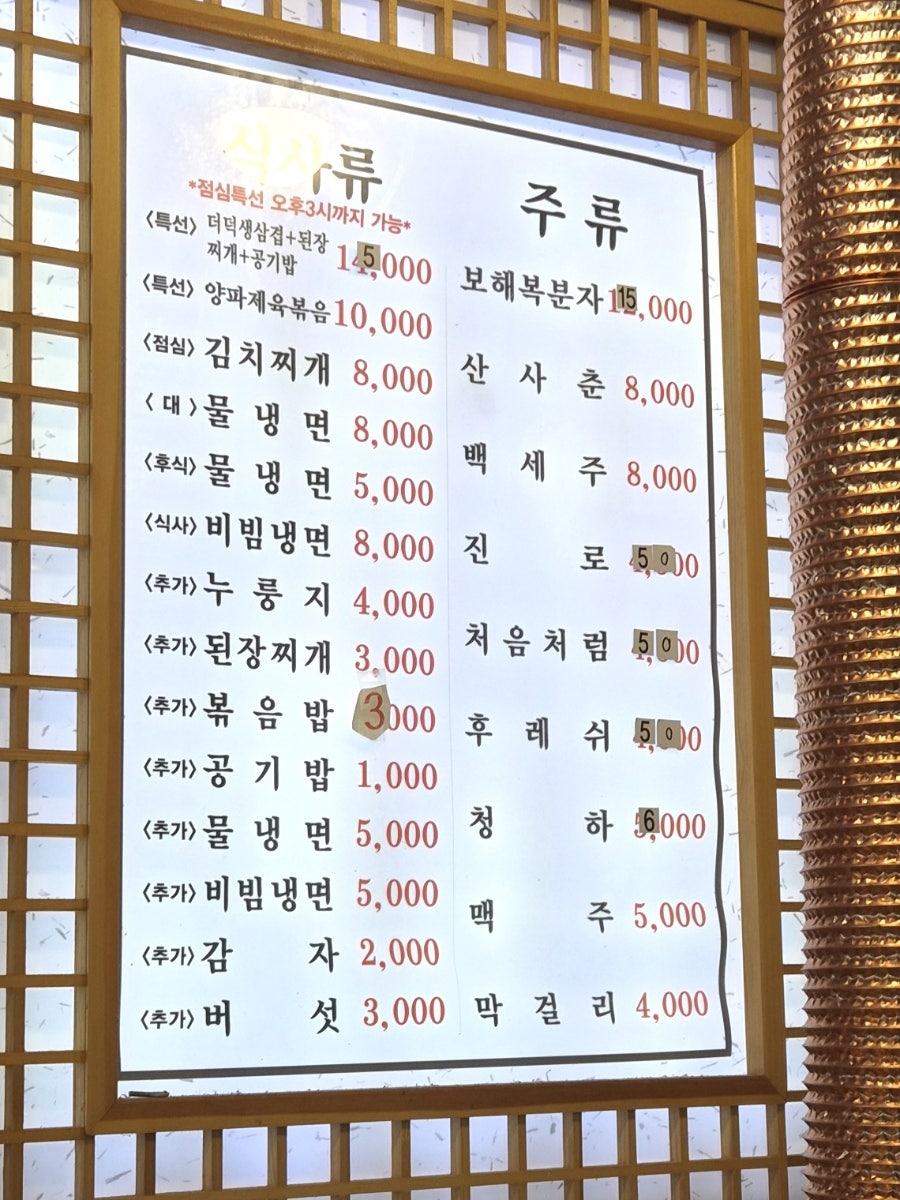 식사류
*점심특선 오후3시까지 가능*
<특선> 더덕생삼겹+된장
찌개+공기밥 15,000
<특선> 양파제육볶음 10,000
<점심> 김치찌개 8,000
<대> 물냉면 8,000
<후식> 물냉면 5,000
<식사> 비빔냉면 8,000
<추가> 누룽지 4,000
<추가> 된장찌개 3,000
<추가> 볶음밥 3000
<추가> 공기밥 1,000
<추가> 물냉면 5,000
<추가> 비빔냉면 5,000
<추가> 감자 2,000
<추가> 버섯 3,000
주류
보해복분자 15,000
산사춘 8,000
백세주 8,000
진로 5000
처음처럼 5000
후레쉬 5000
청하 6,000
맥주 5,000
막걸리 4,000